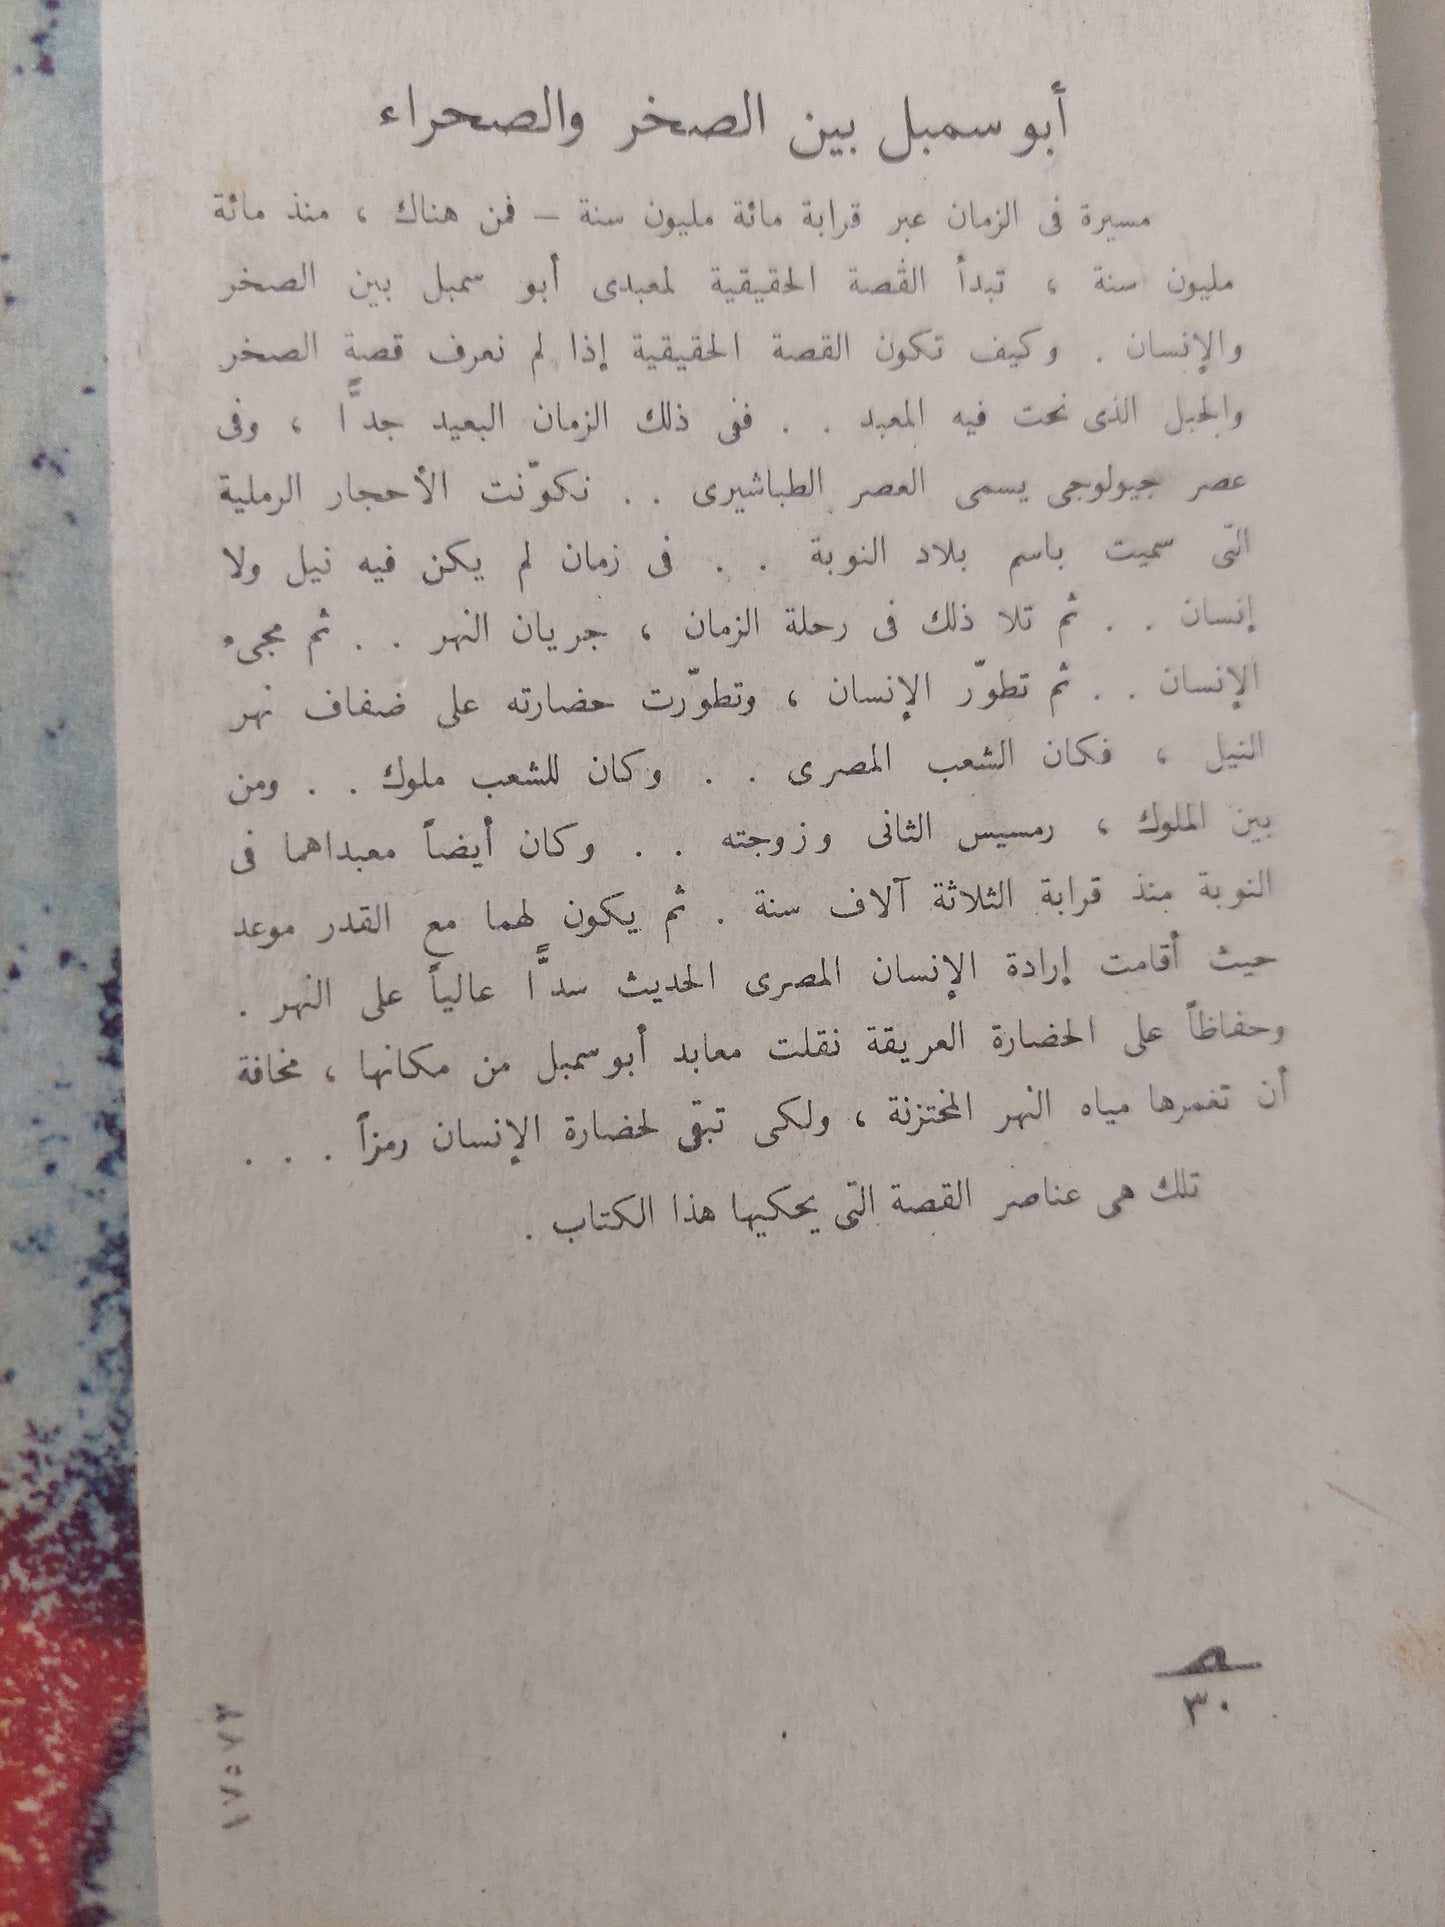 أبو سمبل بين الصخر والصحراء
مسيرة فى الزمان عبر قرابة مائة مليون سنة – فمن هناك ، منذ مائة
مليون سنة ، تبدأ القصة الحقيقية لمعبدى أبو سمبل بين الصخر
والإنسان . وكيف تكون القصة الحقيقية إذا لم نعرف قصة الصخر
والجبل الذى نحت فيه المعبد . . ففى ذلك الزمان البعيد جدًّا ، وفى
عصر جيولوجى يسمى العصر الطباشيرى . . تكوّنت الأحجار الرملية
التى سميت باسم بلاد النوبة . . فى زمان لم يكن فيه نيل ولا
إنسان . . ثم تلا ذلك فى رحلة الزمان ، جريان النهر . . ثم مجىء
الإنسان . . ثم تطوّر الإنسان ، وتطوّرت حضارته على ضفاف نهر
النيل ، فكان الشعب المصرى . . وكان للشعب ملوك . . ومن
بين الملوك ، رمسيس الثانى وزوجته . . وكان أيضاً معبداهما فى
النوبة منذ قرابة الثلاثة آلاف سنة . ثم يكون لهما مع القدر موعد
حيث أقامت إرادة الإنسان المصرى الحديث سدًّا عالياً على النهر .
وحفاظاً على الحضارة العريقة نقلت معابد أبو سمبل من مكانها ، مخافة
أن تغمرها مياه النهر المختزنة ، ولكى تبقى لحضارة الإنسان رمزاً . . .
تلك هى عناصر القصة التى يحكيها هذا الكتاب .
٣٠